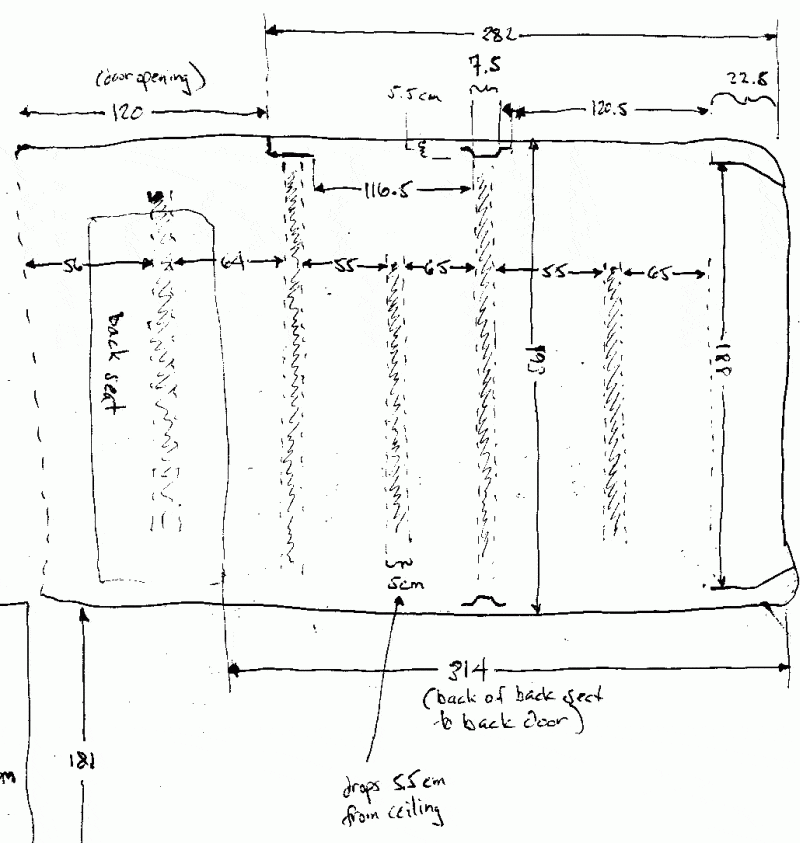 282
7.5
(door opening)
5.5cm
22.8
120
120.5
116.5
56
64
55
65
55
65
back seat
193
188
5cm
314
(back of back seat
to back door)
181
drops 5.5cm
from ceiling